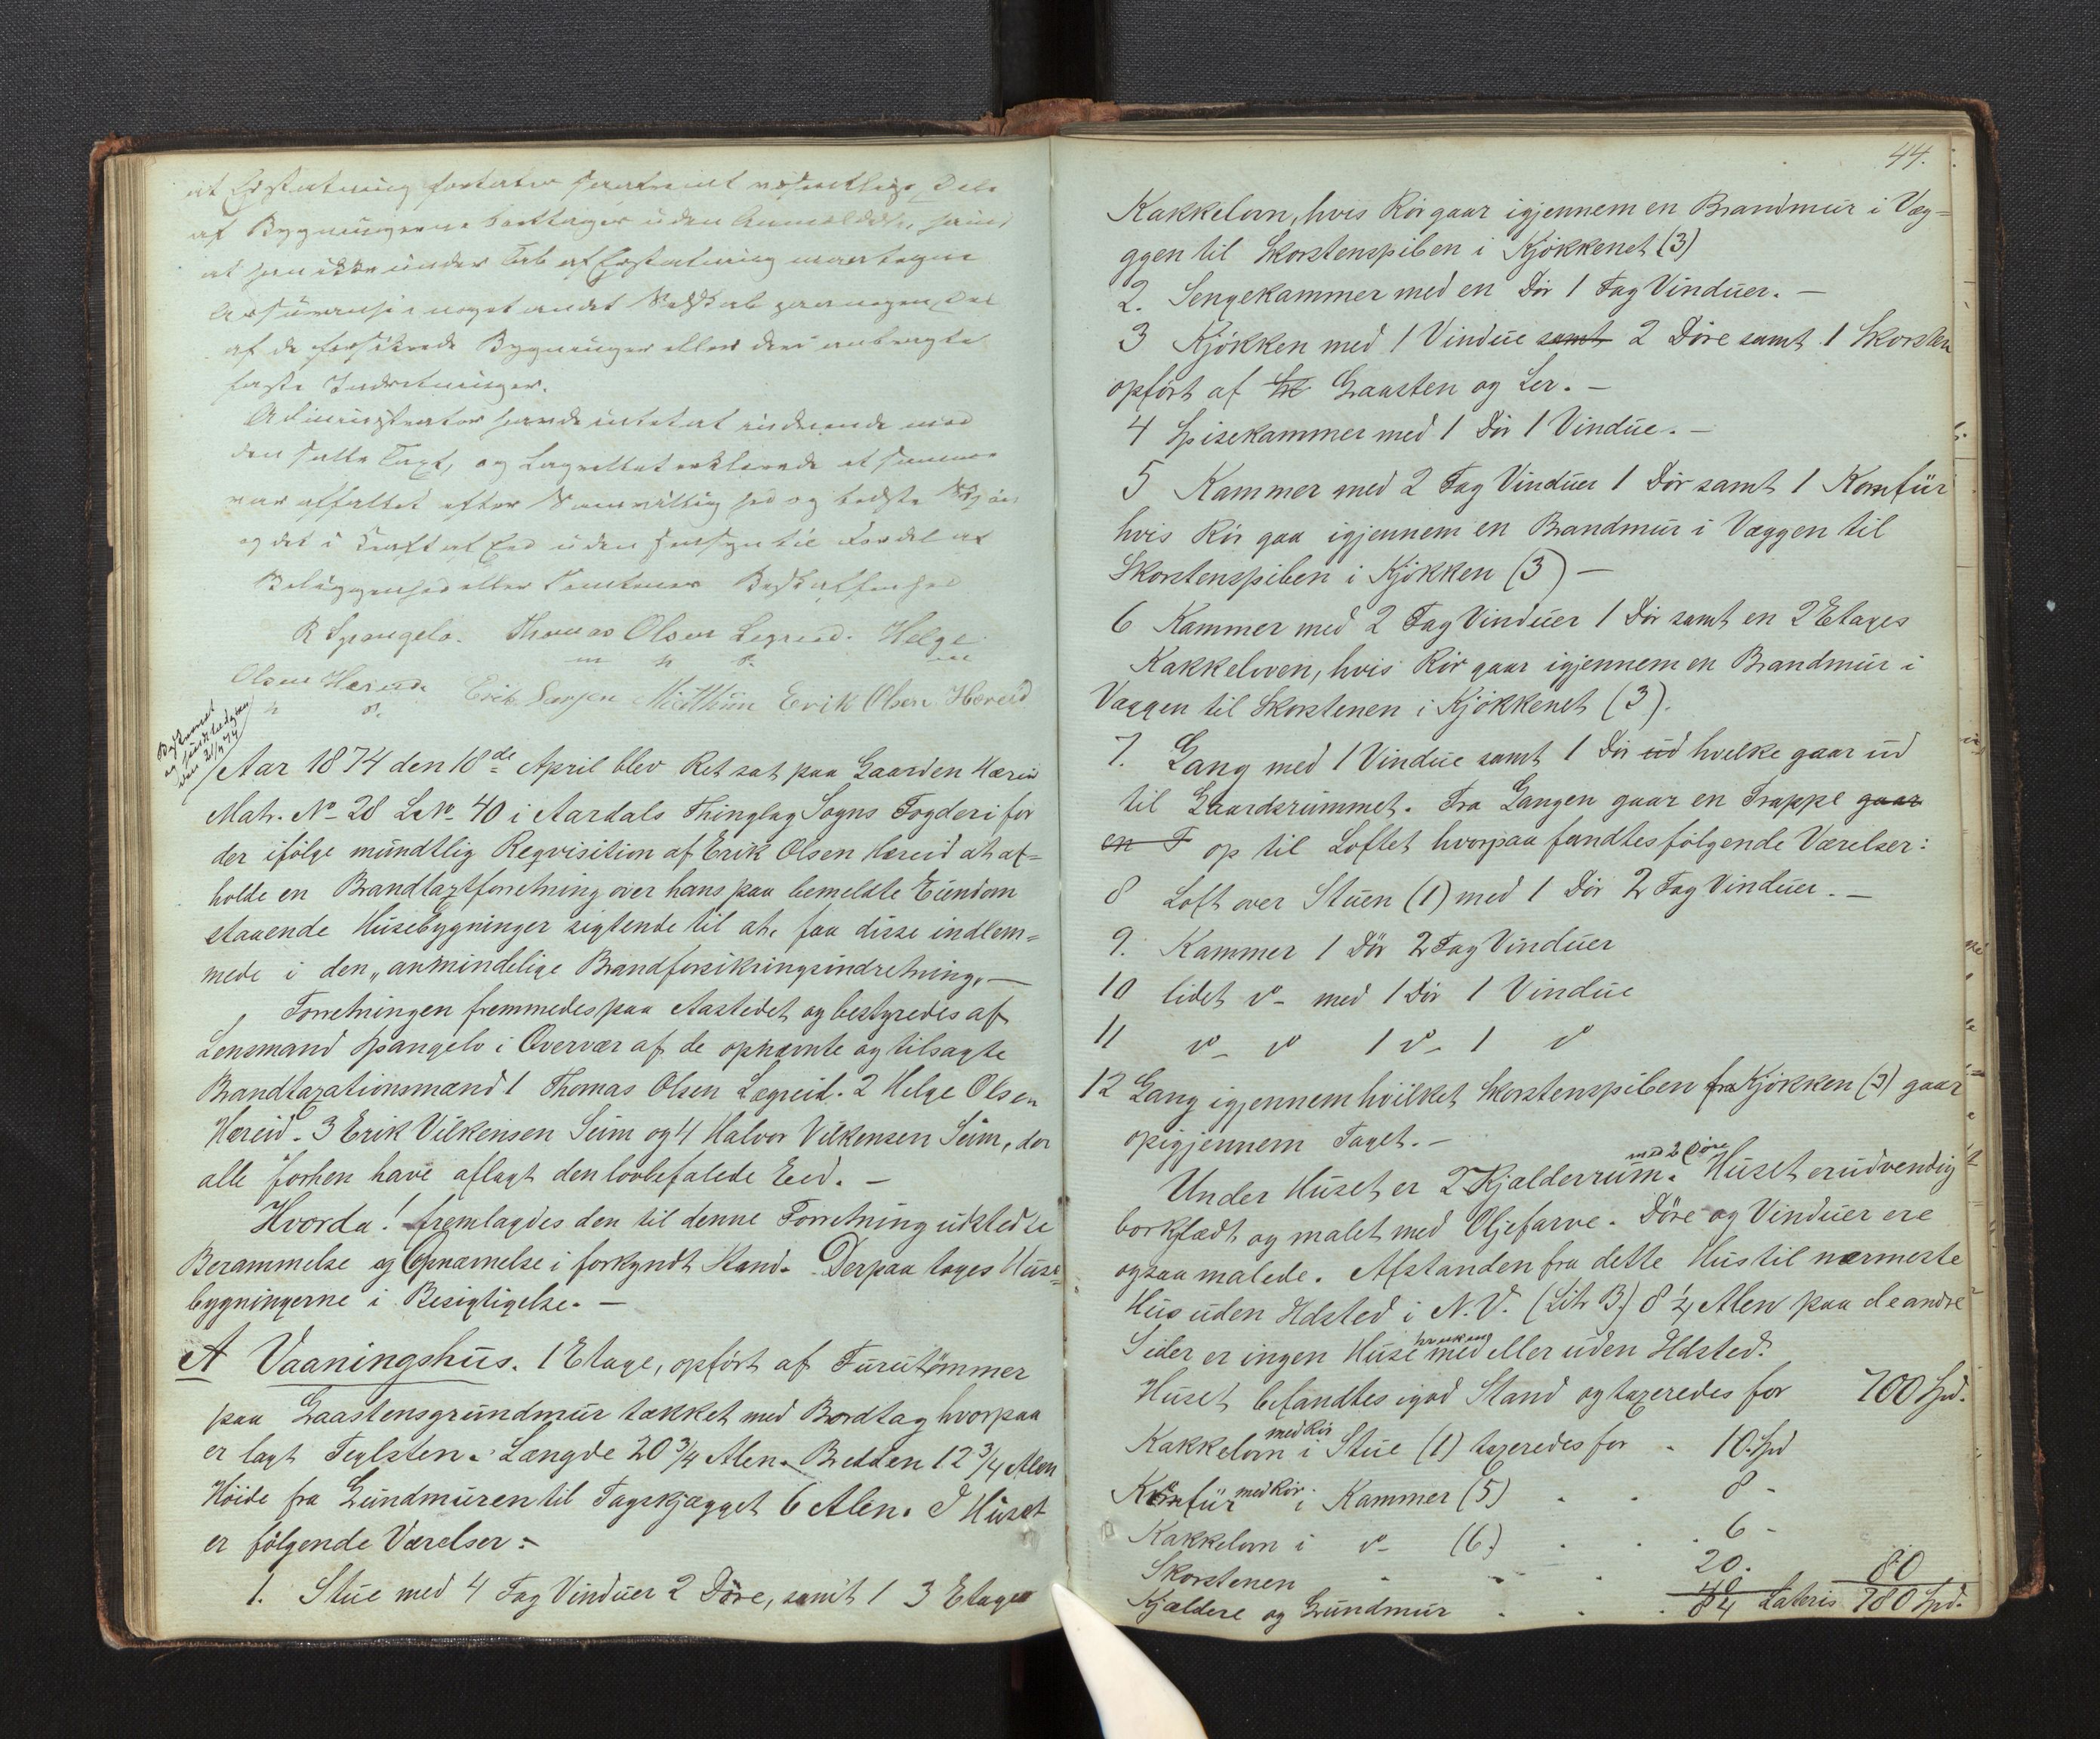 at Erstatning fortaber saafremt væsentlige Dele
af Bygningerne borttages uden Anmeldelse, samt
at han ikke under Tab af Erstatning maa tegne
Assurance i noget andet Selskab paa nogen Del
af de forsikrede Bygninger eller deri anbragte
faste Indretninger.
Administrator havde intet at indvende mod
den satte Taxt, og Lagrettet erklærede at samme
var affattet efter Samvittighed og bedste Skjøn
og det i Kraft af Eed uden Hensyn til Fordel af
Beliggenhed eller Tomtens Beskaffenhed
R Spangelo. Thomas Olsen Legreid. Helge
m p P. m
Olsen Hæreid. Erik Larsen Midthun Erik Olsen Hæreid
p P.
Beskrevet
og
den 21/4 74
Aar 1874 den 18de April blev Ret sat paa Gaarden Hæreid
Matr. No 28 L.No 40 i Aardals Thinglag Sogns Fogderi for
der ifølge mundtlig Reqvisition af Erik Olsen Hæreid at af=
holde en Brandtaxtforretning over hans paa bemeldte Eiendom
staaende Husebygninger sigtende til at faa disse indlem=
mede i den „almindelige Brandforsikringsindretning„ —
Forretningen fremmedes paa Aastedet og bestyredes af
Lensmand Spangelo i Overvær af de opnævnte og tilsagte
Brandtaxationsmænd 1 Thomas Olsen Lægreid. 2 Helge Olsen
Hæreid. 3 Erik Vilkensen Seim og 4 Halvor Vilkensen Seim, der
alle forhen have aflagt den lovbefalede Eed. —
Hvorda! fremlagdes den til denne Forretning udstedte
Berammelse og Opnævnelse i forkyndt Stand. Derpaa toges Huse=
bygningerne i Besigtigelse. —
A Vaaningshus. 1 Etage, opført af Furutømmer
paa Graastensgrundmur tækket med Bordtag hvorpaa
er lagt Teglsten. Længde 20 3/4 Alen. Bredden 12 3/4 Alen
Høide fra Grundmuren til Tagskjægget 6 Alen. I Huset
er følgende Værelser:
1. Stue med 4 Fag Vinduer 2 Døre, samt 1 3 Etages
44.
Kakkelovn, hvis Rør gaar igjennem en Brandmur i Væg=
ggen til Skorstenspiben i Kjøkkenet (3)
2. Sengekammer med en Dør 1 Fag Vinduer. —
3 Kjøkken med 1 Vindue samt 2 Døre samt 1 Skorsten
opført af Graasten og Ler. —
4 Spisekammer med 1 Dør 1 Vindue. —
5 Kammer med 2 Fag Vinduer 1 Dør samt 1 Komfür
hvis Rør gaa igjennem en Brandmur i Væggen til
Skorstenspiben i Kjøkken (3) —
6 Kammer med 2 Fag Vinduer 1 Dør samt en 2 Etages
Kakkeloven, hvis Rør gaar igjennem en Brandmur i
Væggen til Skorstenen i Kjøkkenet (3).
7. Gang med 1 Vindue samt 1 Dør ud hvilke gaar ud
til Gaardsrummet. Fra Gangen gaar en Trappe gaar
en T op til Loftet hvorpaa fandtes følgende Værelser:
8 Loft over Stuen (1) med 1 Dør 2 Fag Vinduer. —
9. Kammer 1 Dør 2 Fag Vinduer
10 lidet do med 1 Dør 1 Vindue
11 do do 1 do 1 do
12 Gang igjennem hvilket Skorstenspiben fra Kjøkken (3) gaar
op igjennem Taget. —
Under Huset er 2 Kjælderrum. med 2 Døre Huset er udvendig
bordklædt og malet med Oljefarve. Døre og Vinduer ere
ogsaa malede. Afstanden fra dette Hus til nærmeste
Hus uden Ildsted i N.V. (Litr B.) 8 1/4 Alen paa de andre
Sider er ingen Huse hverken med eller uden Ildsted.
Huset befandtes i god Stand og taxeredes for 700 Spd.
Kakkelovn med Rør i Stue (1) taxeredes for . 10 Spd
Komfür med Rør i Kammer (5) . . 8 -
Kakkelovn i do (6) . . 6 -
Skorstenen . . . 20. 80
Kjældere og Grundmur . . . 84 Lateris 780 Spd.